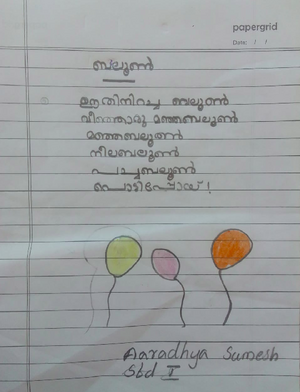 papergrid
Date: / /
ബലൂൺ
ഊതിനിറച്ച ബലൂൺ
വീർത്തൊരു മഞ്ഞബലൂൺ
മഞ്ഞബലൂൺ
നീലബലൂൺ
പച്ചബലൂൺ
പൊട്ടിപ്പോയ് !
Aaradhya Sumesh
Std I